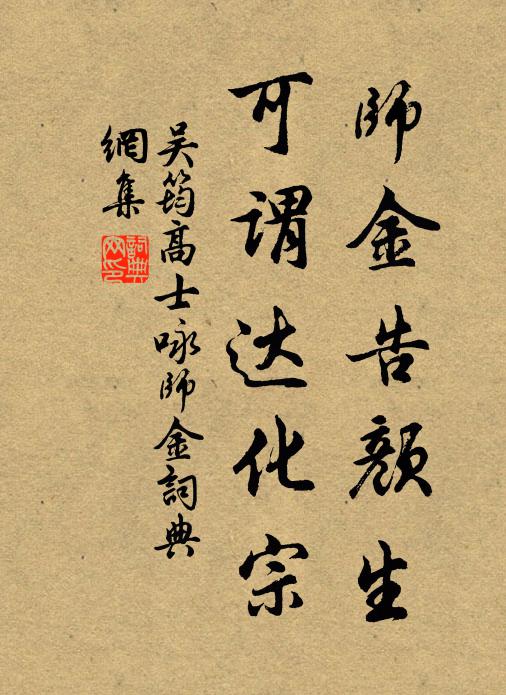 師金告顔生
可謂达化宗
吴筠高士咏師金詞典
網集
詞典
网印